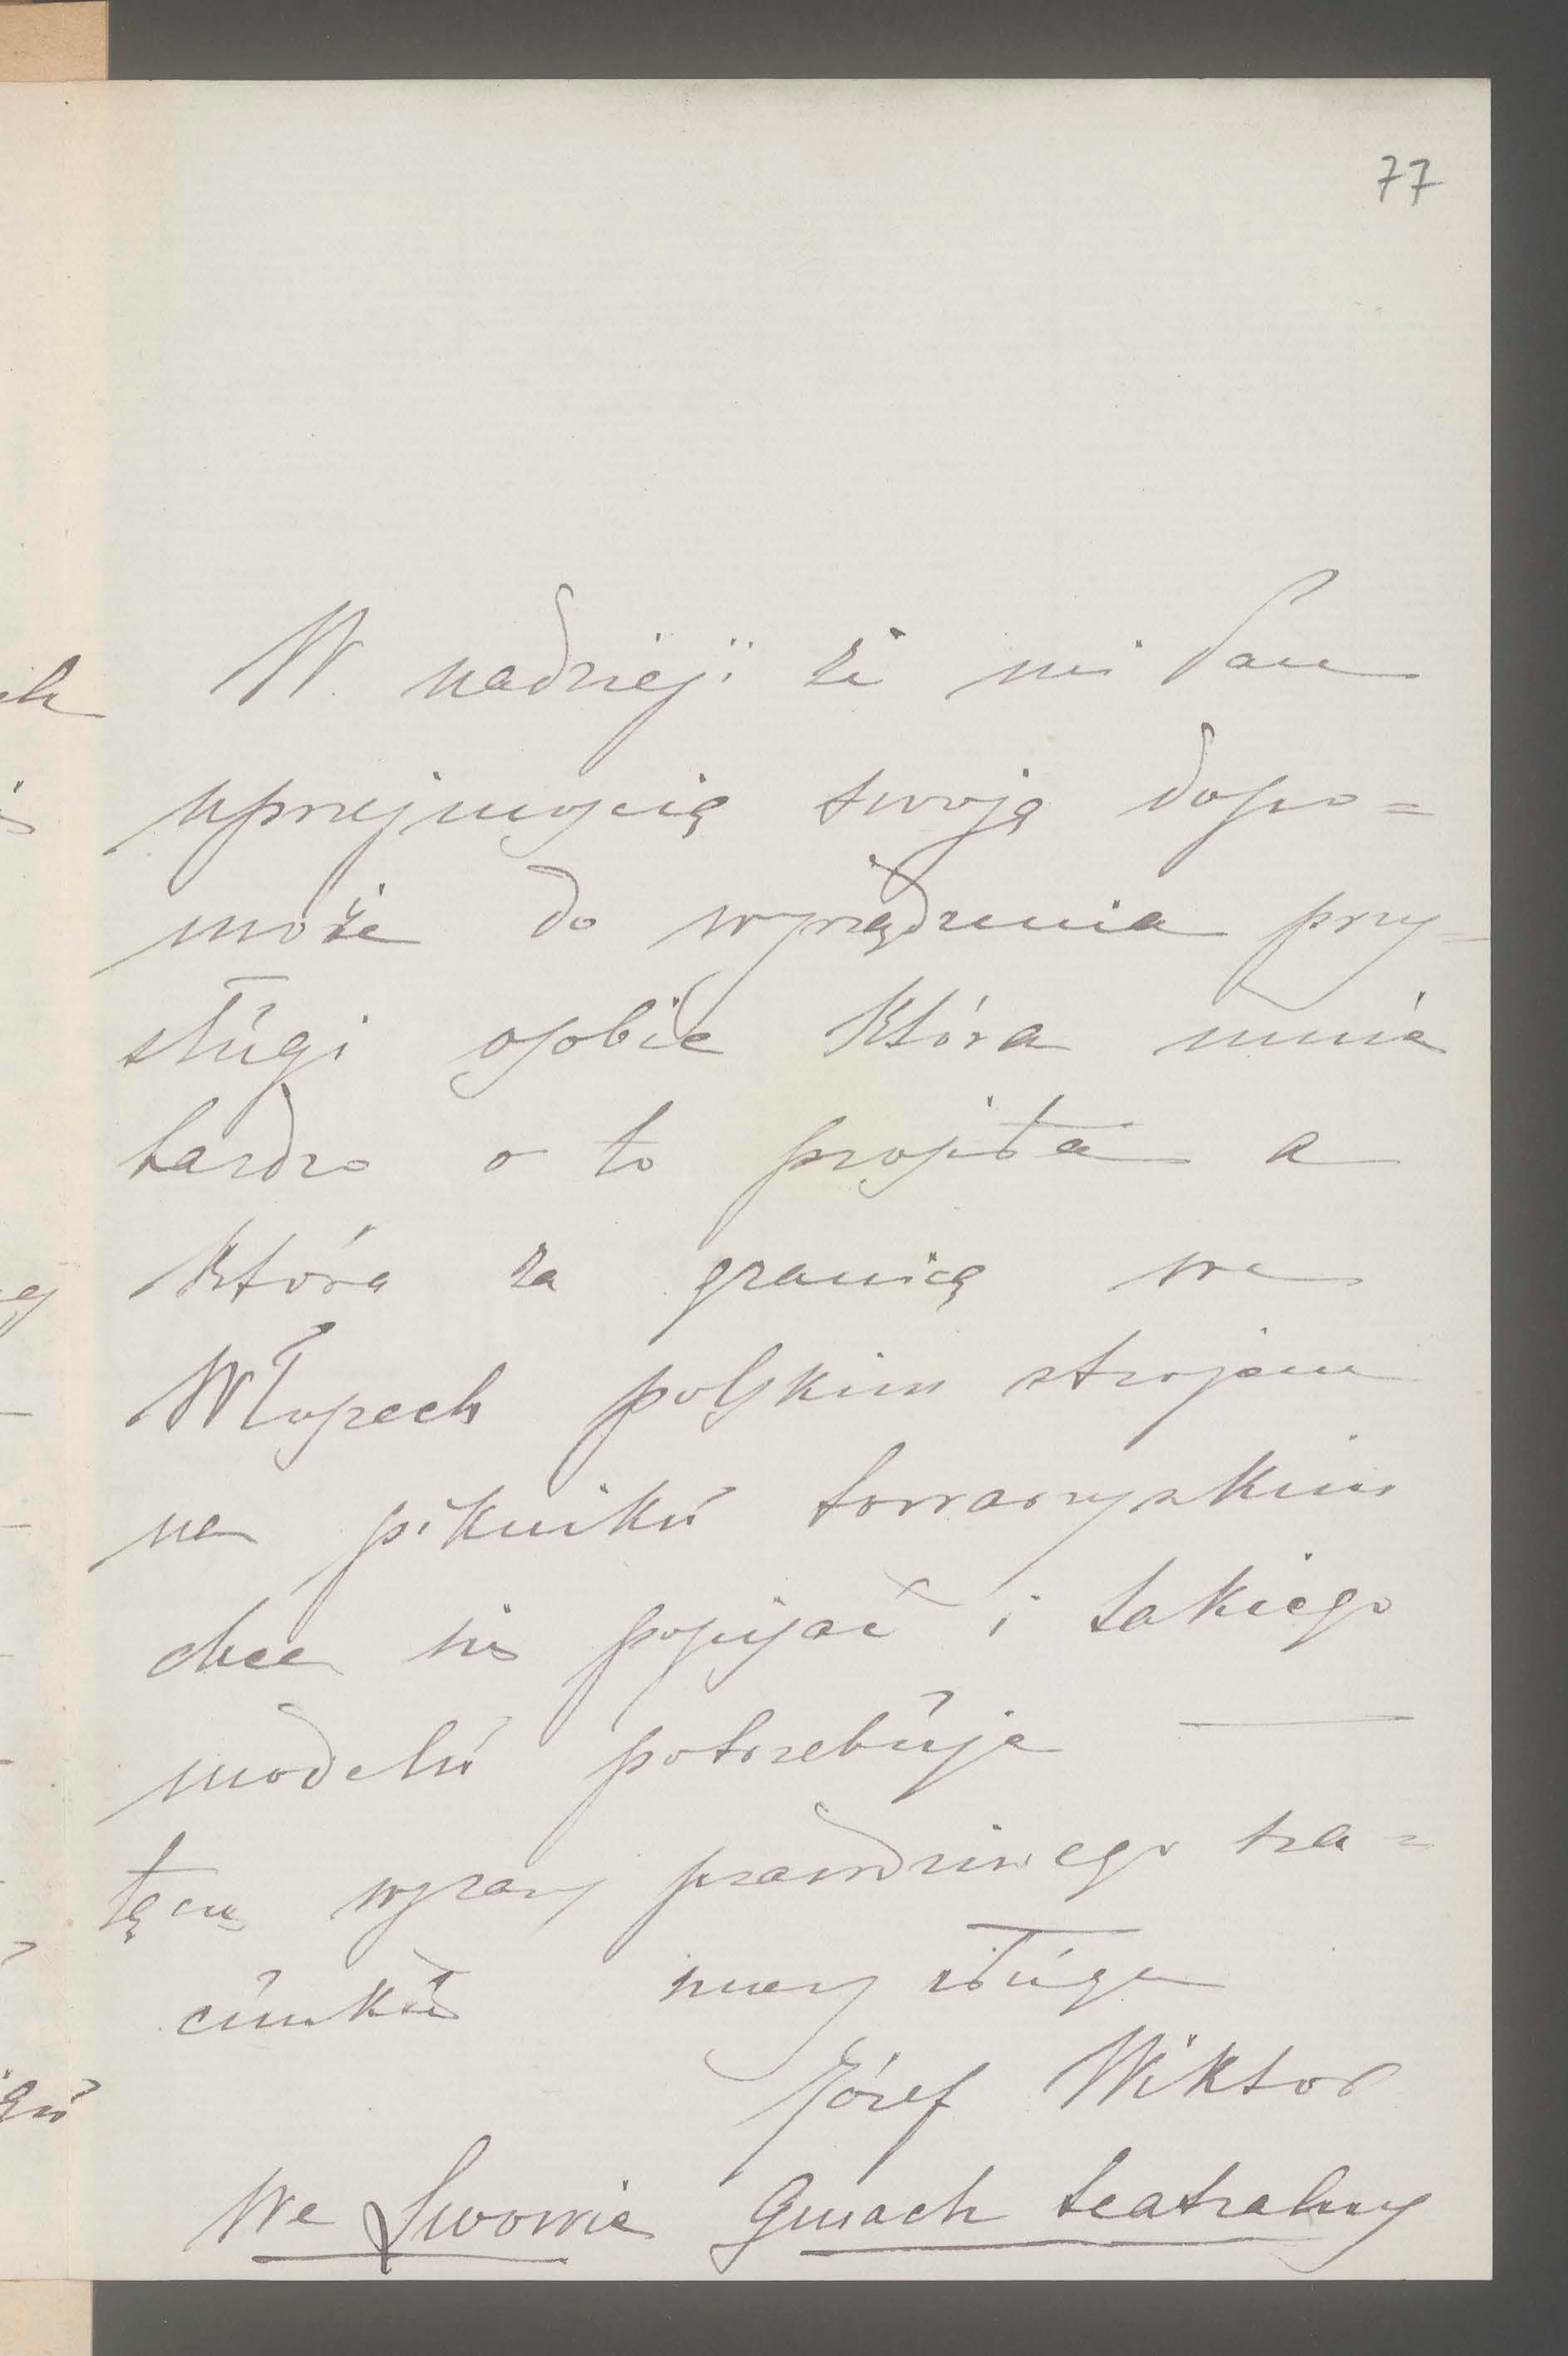 77
W nadzieji że mi Pan
uprzejmością swoją dopo=
może do wyrządzenia przy=
sługi osobie która mnie
bardzo o to prosiła a
która za granicą we
Włoszech polskim strojem
na pikniku towarzyskim
chce się popisać i takiego
modelu potrzebuje —
łączę wyrazy prawdziwego sza=
cunku sługa
Józef Wiktor
We Lwowie Gmach teatralny